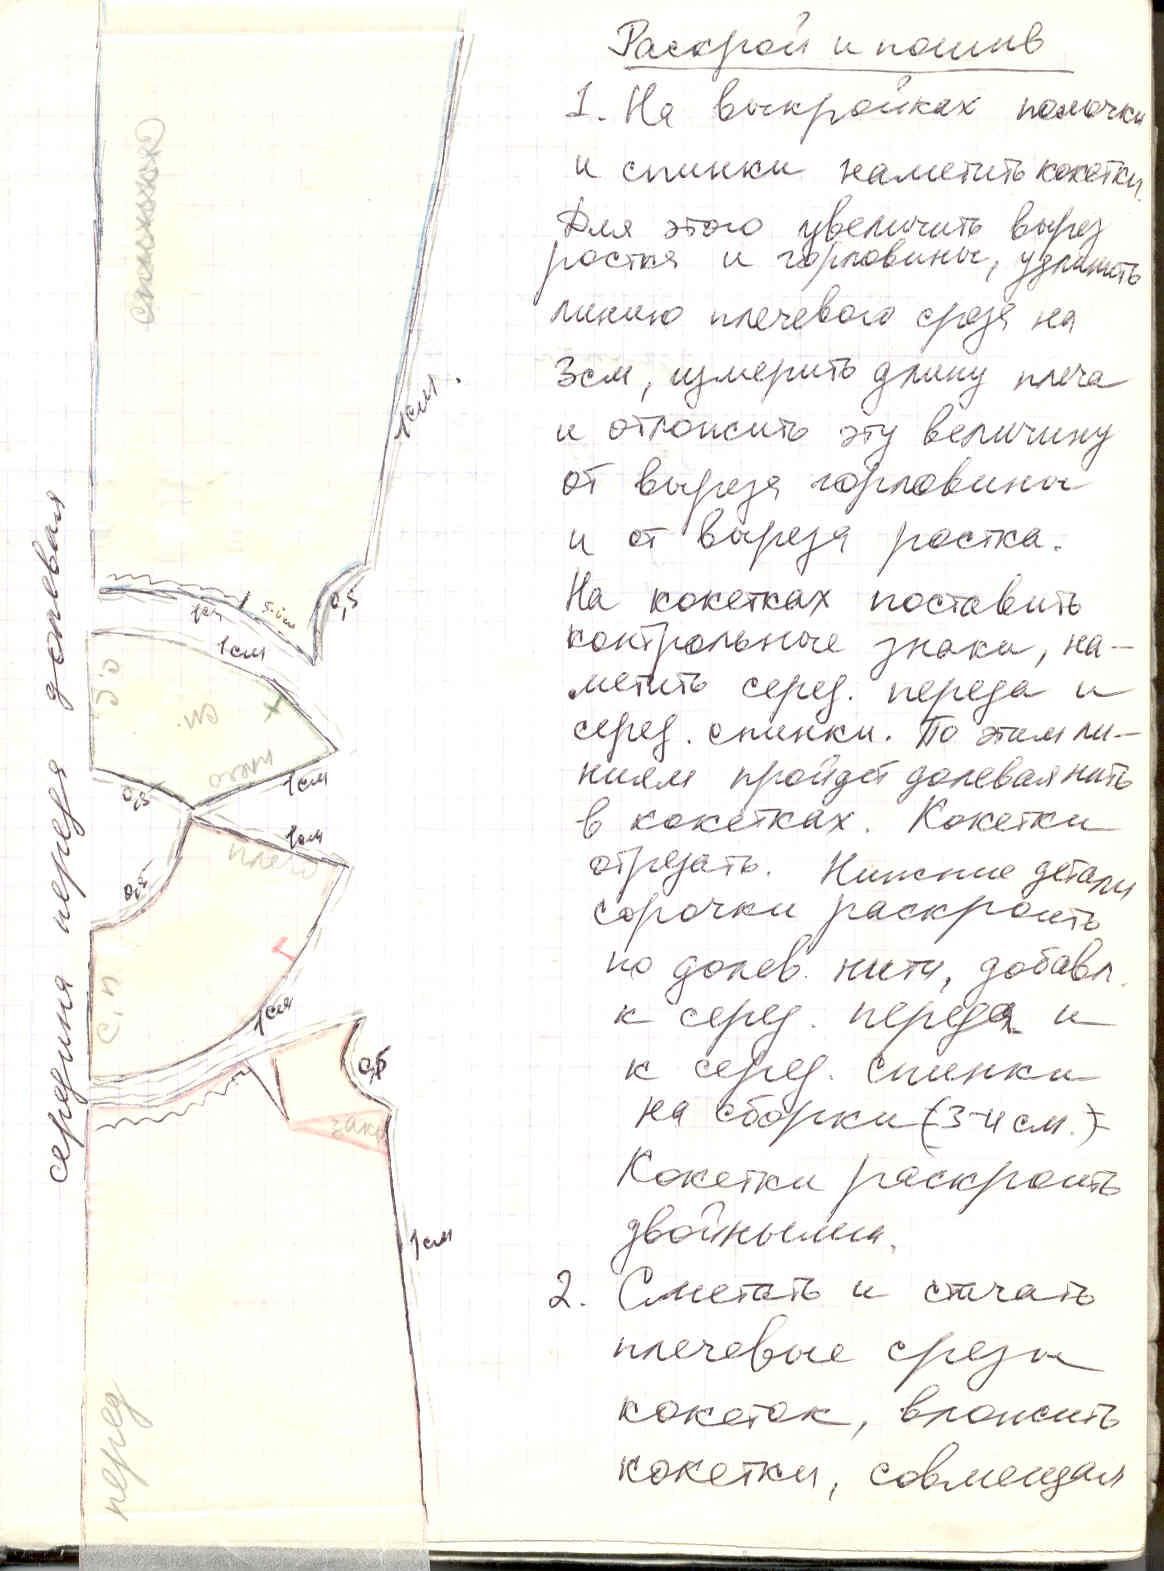 Раскрой и пошив
1. На выкройках полочки
и спинки наметить кокетки.
Для этого увеличить вырез
ростка и горловины,
линию плечевого среза на
3см, измерить длину плеча
и отложить эту величину
от выреза горловины
и от выреза ростка.
На кокетках поставить
контрольные знаки, на-
метить серед. переда и
серед. спинки. По этим ли-
ниям пройдет долевая нить
в кокетках. Кокетки
отрезать. Нижние детали
сорочки раскроить
по долев. нити, добавл.
к серед. переда и
к серед. спинки
на сборки (3-4 см.)-
Кокетки раскроить
двойными.
2. Сметать и стачать
плечевые срезы
кокеток, вложить
кокетки, совмещая
середина переда долевая
1см.
0,5
1см
1см
с.с
сп.
плечо
1см
0,5
1см
плечо
0,5
с.п
1см
0,5
1см
перед